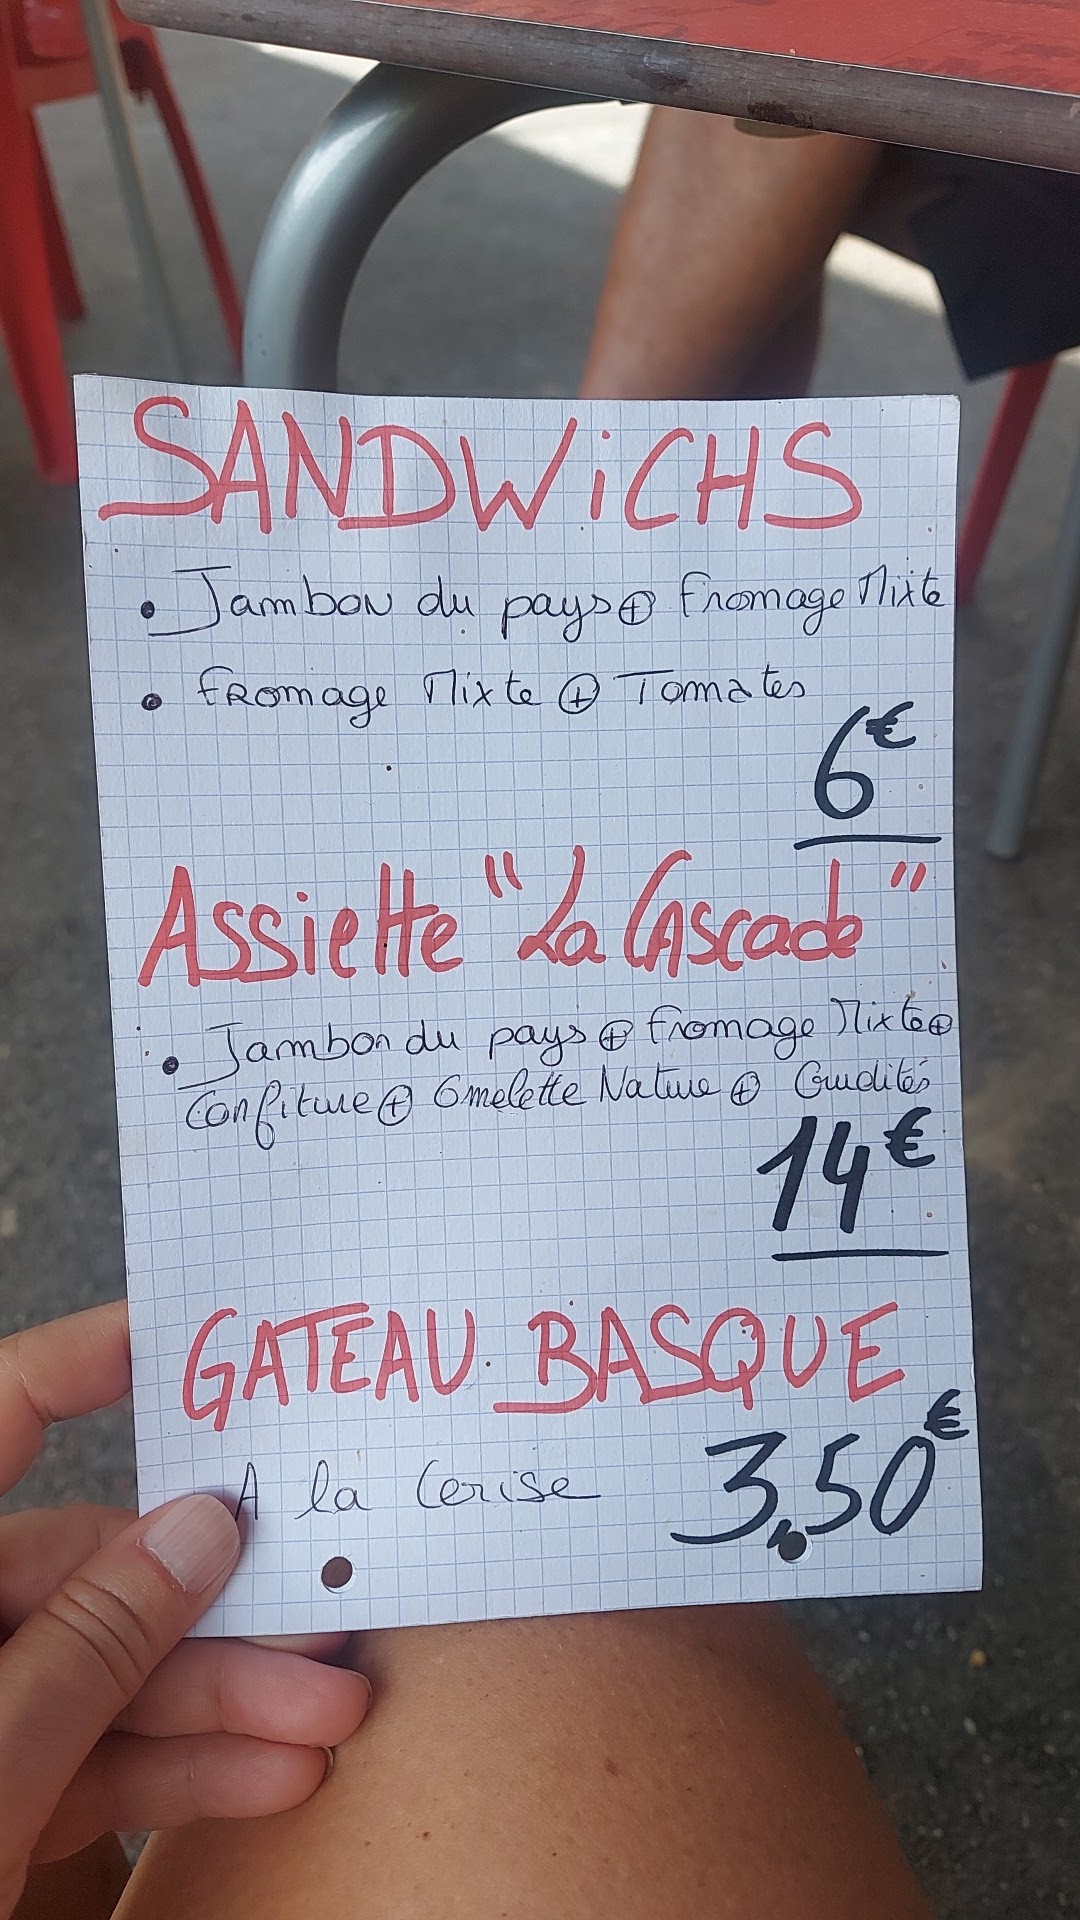 SANDWiCHS
• Jambon du pays ⊕ fromage Mixte
• fromage Mixte ⊕ Tomates
6€
Assiette "La Cascade"
• Jambon du pays ⊕ fromage Mixte ⊕
Confiture ⊕ Omelette Nature ⊕ Crudités
14€
GATEAU BASQUE
A la Cerise 3,50€